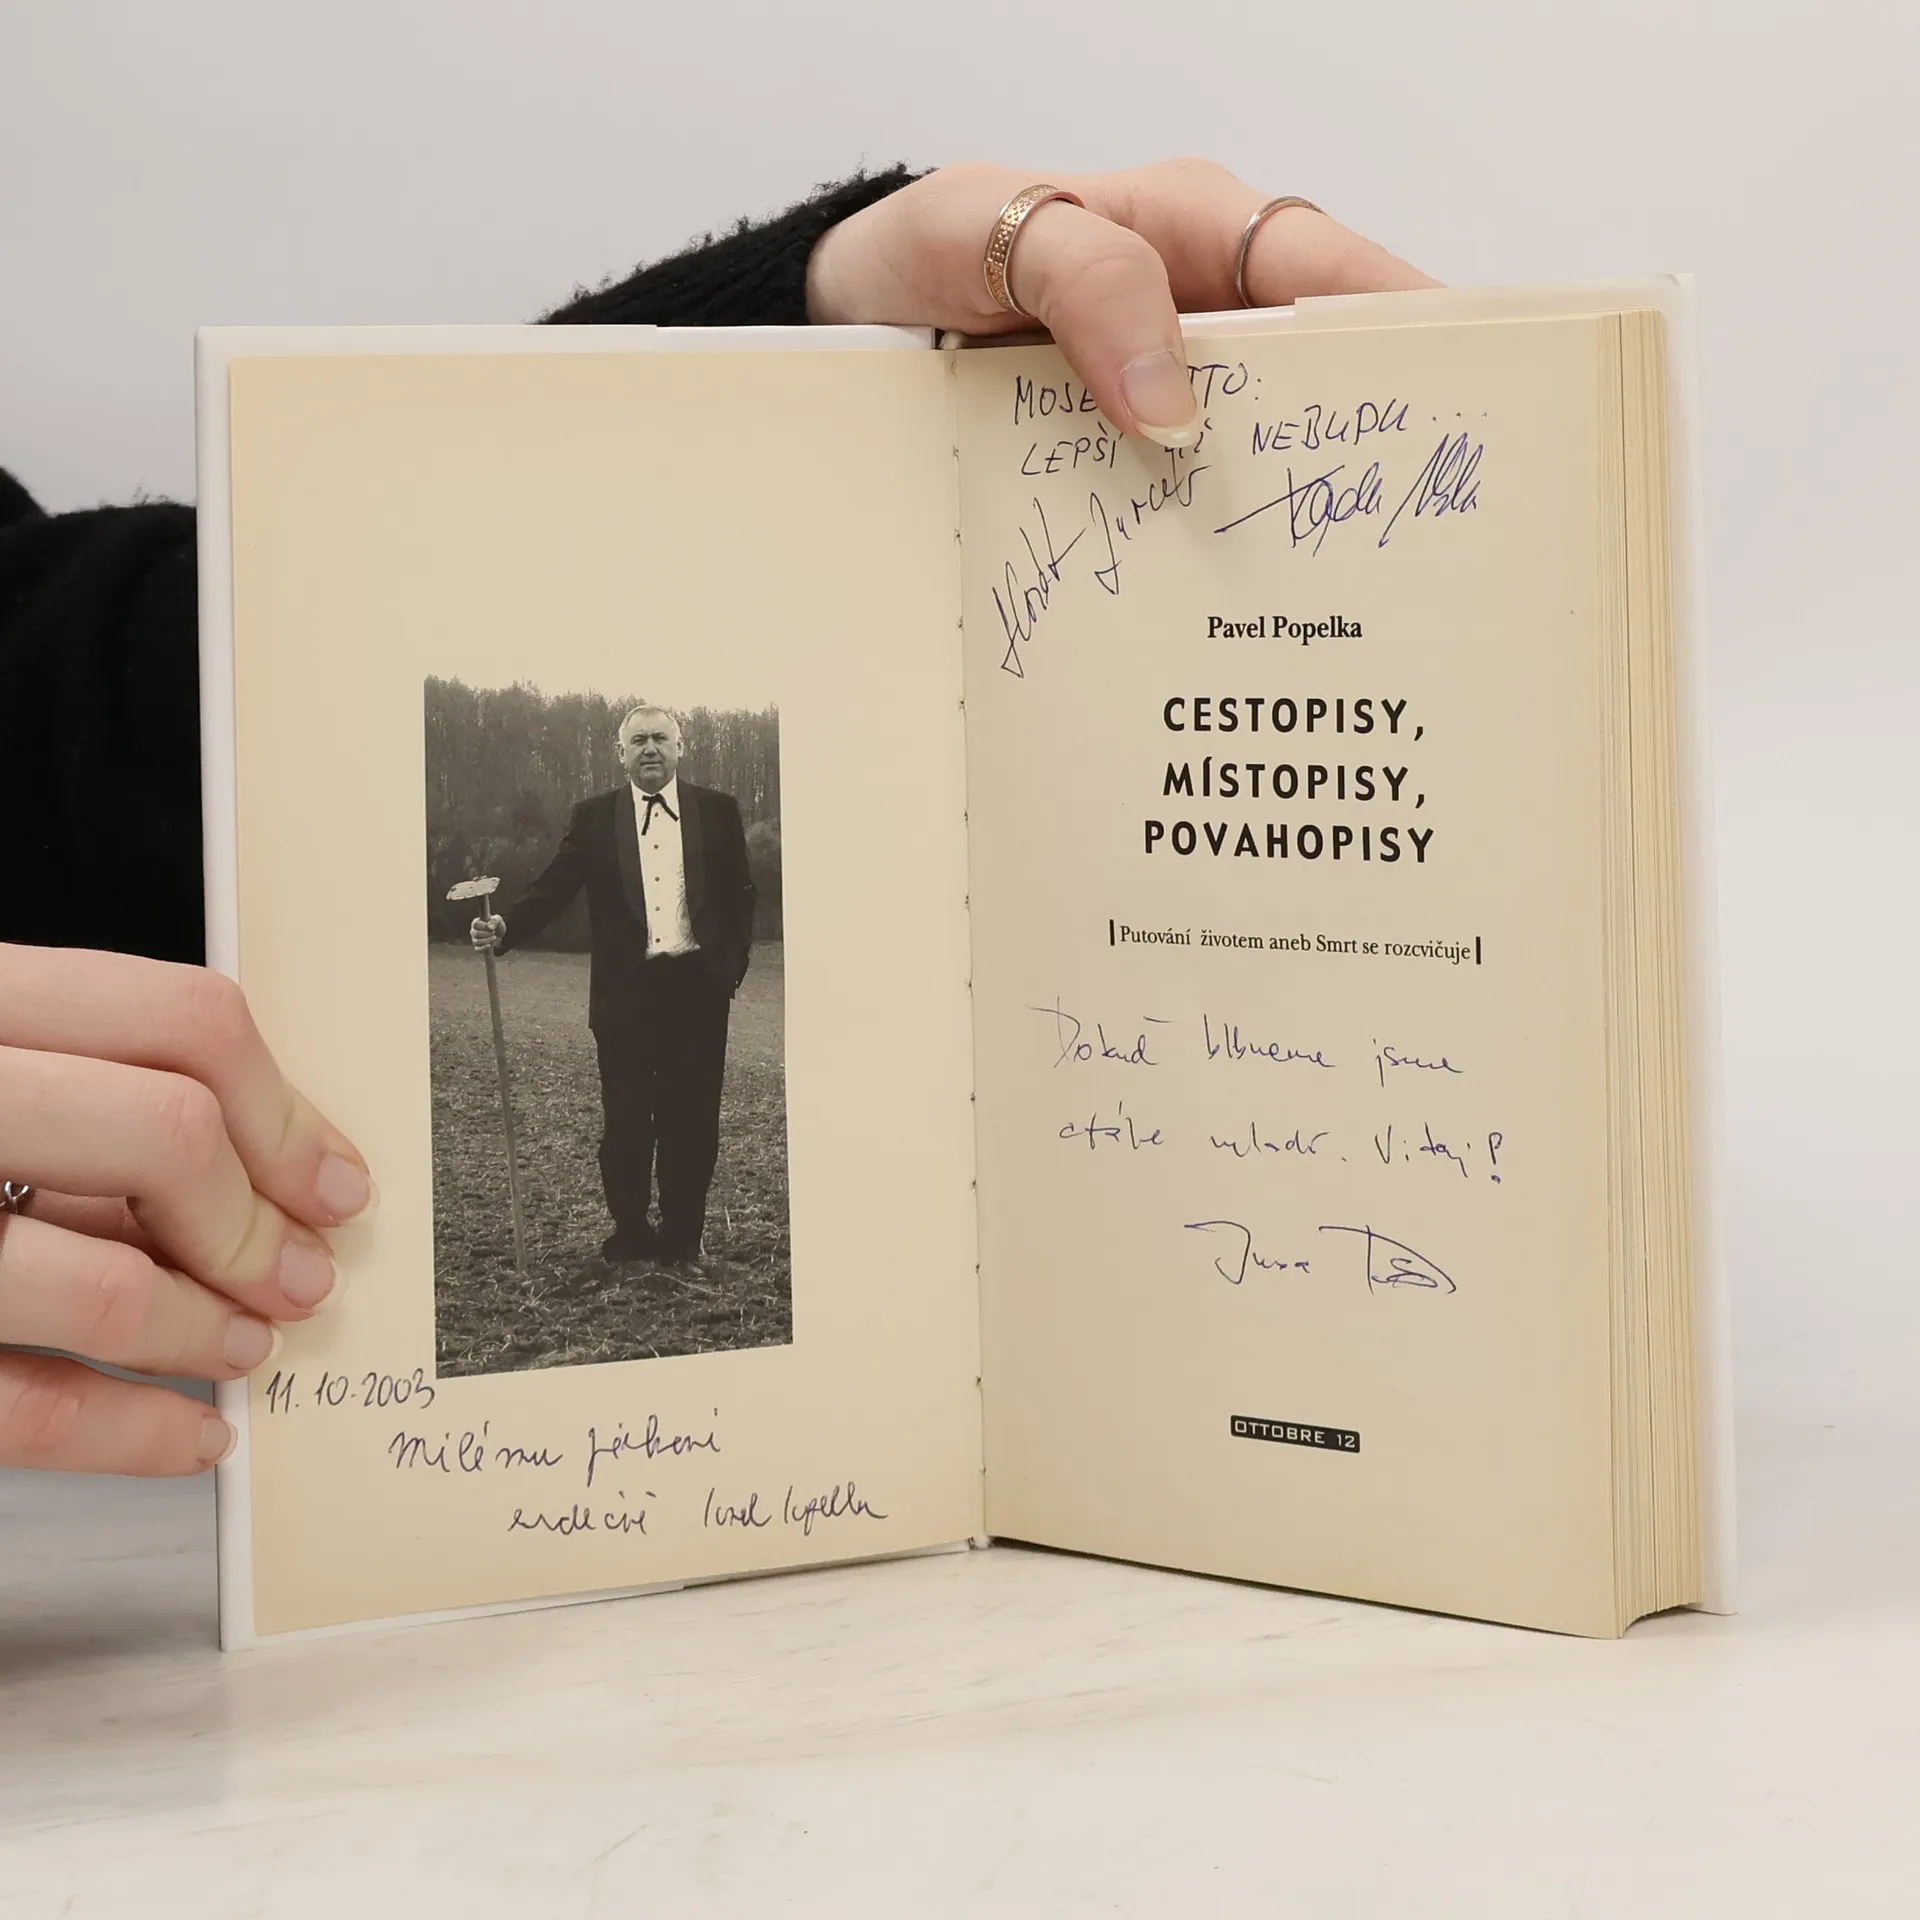 11. 10. 2003
Milému
srdečně Pavel Popelka
LEPŠÍ NEBUDU...
Pavel Popelka
CESTOPISY,
MÍSTOPISY,
POVAHOPISY
Putování životem aneb Smrt se rozcvičuje
Dokud blbneme jsme
stále mladí. Vítej!
OTTOBRE 12